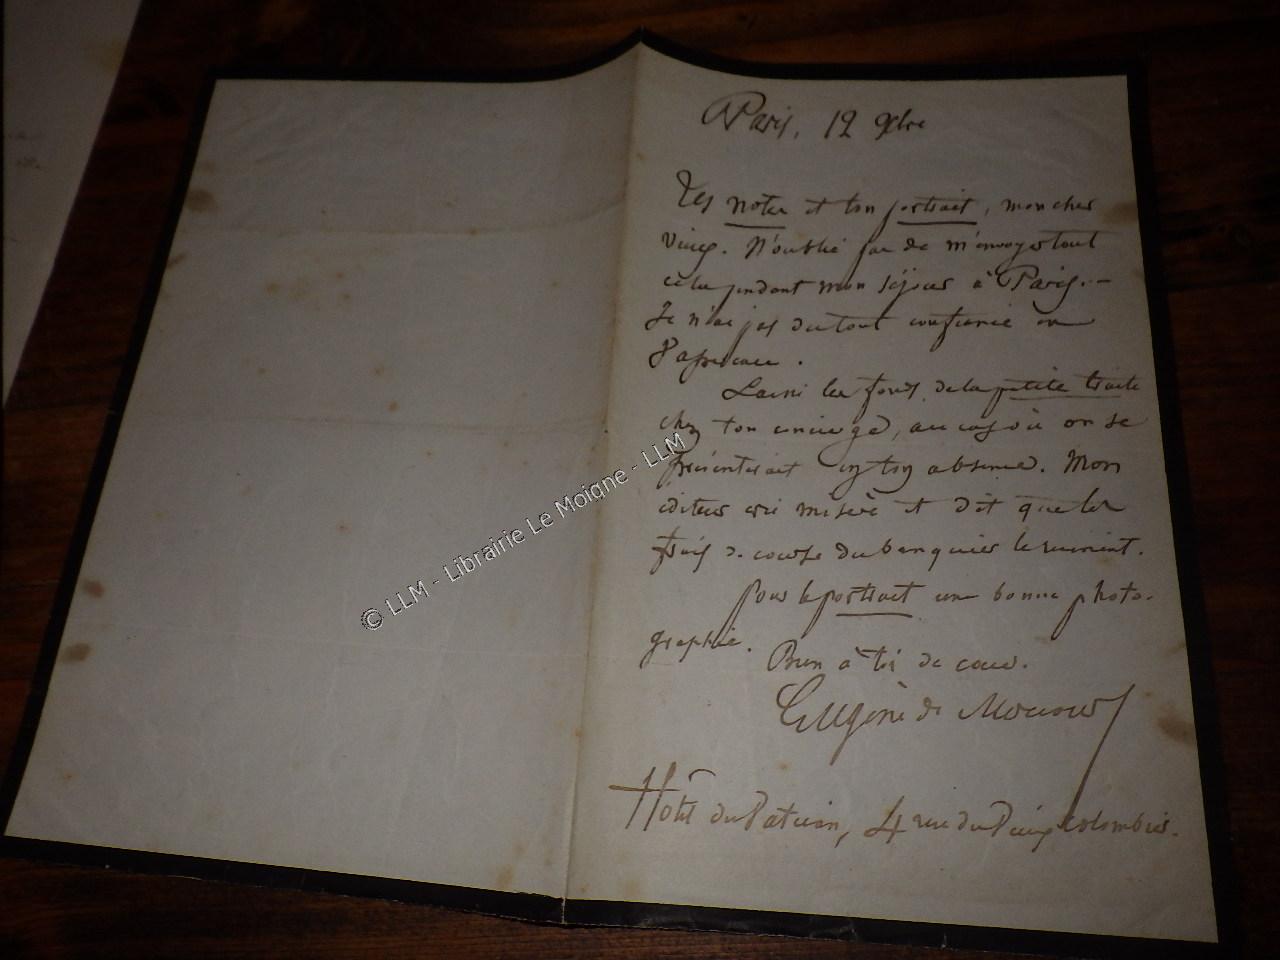 Paris, 12 9bre
Tes notes et ton portrait, mon cher
Vinçs. N'oublie pas de m'envoyer tout
cela pendant mon séjour à Paris. —
Je n'ai pas du tout confiance en
Laisse les fonds de la petite traite
chez ton concierge, au cas où on se
présenterait en ton absence. Mon
éditeur crie misère et dit que les
frais de course du banquier le ruinent.
Pour le portrait une bonne photo-
graphie.
Bien à toi de cœur.
Eugène de Mirecourt
Hôtel du Vatican, 4 rue du Vieux Colombier.
© LLM - Librairie Le Moigne - LLM